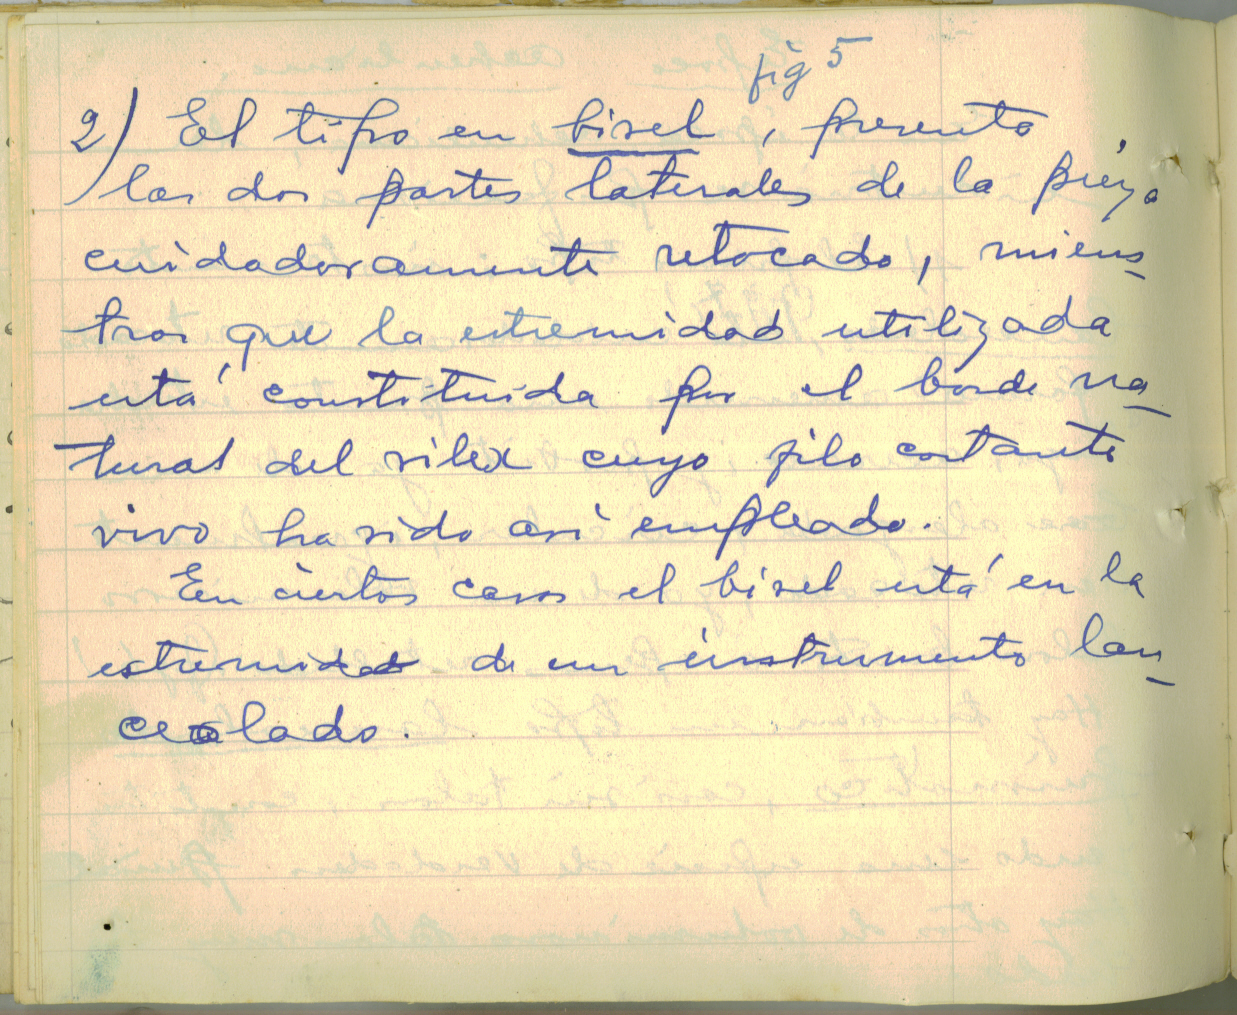 fig 5
2) El tipo en bisel, presenta
las dos partes laterales de la pieza
cuidadosamente retocado, mien-
tras que la estremidad utilizada
está constituida por el borde na-
tural del silex cuyo filo cortante
vivo ha sido así empleado.
En ciertos casos el bisel está en la
estremidad de un instrumento lan-
ceolado.